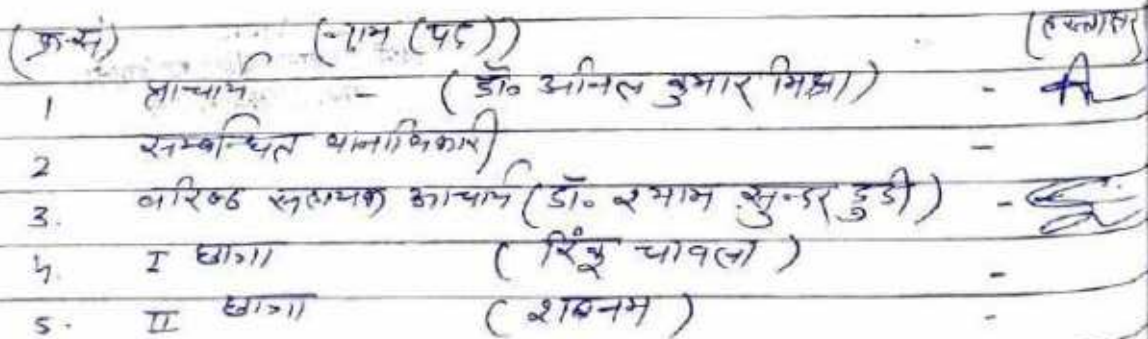 (क्र.सं) (नाम (पद)) (हस्ताक्षर)
1 प्राचार्य - (डॉ॰ अनिल कुमार मिश्रा) -
2 सम्बन्धित थानाधिकारी -
3. वरिष्ठ सहायक आचार्य (डॉ॰ श्याम सुन्दर डुडी) -
4. I छात्रा (रिंकू चावला) -
5. II छात्रा (शबनम) -